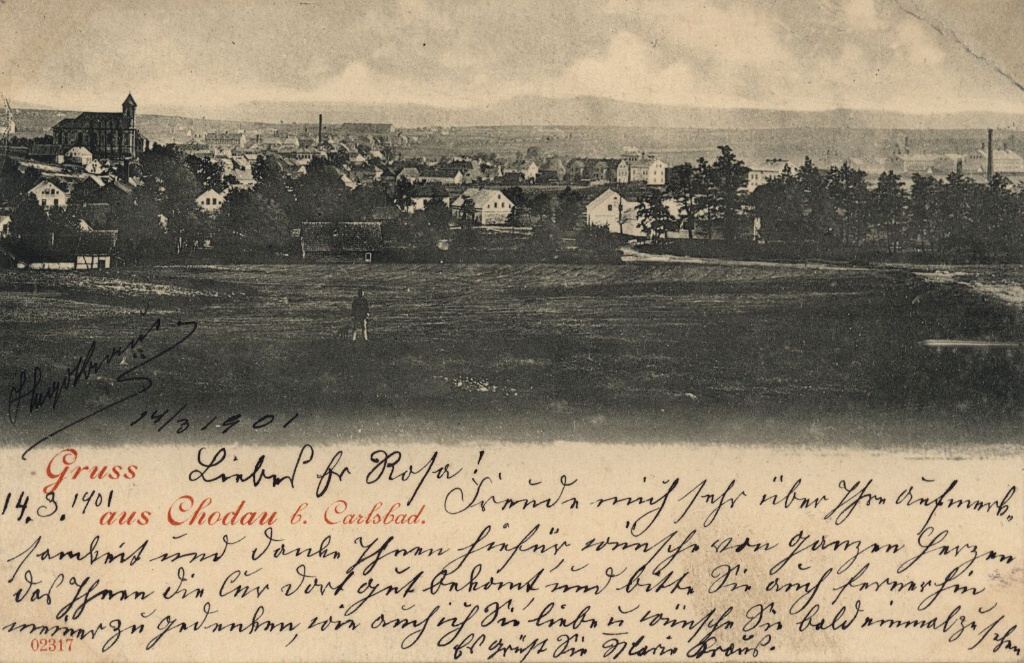 Hugo Kraus
14/3 1901
Gruss
aus Chodau b. Carlsbad.
14.3.1901
Liebes Fr Rosa!
Freude mich sehr über Ihre Aufmerk-
samkeit und danke Ihnen hiefür, wünsche von ganzen Herzen
das Ihnen die Cur dort gut bekomt, und bitte Sie auch fernerhin
meiner zu gedenken, wie auch ich Sie liebe u wünsche Sie bald einmal zu sehen
Es grüst Sie Marie Kraus.
02317